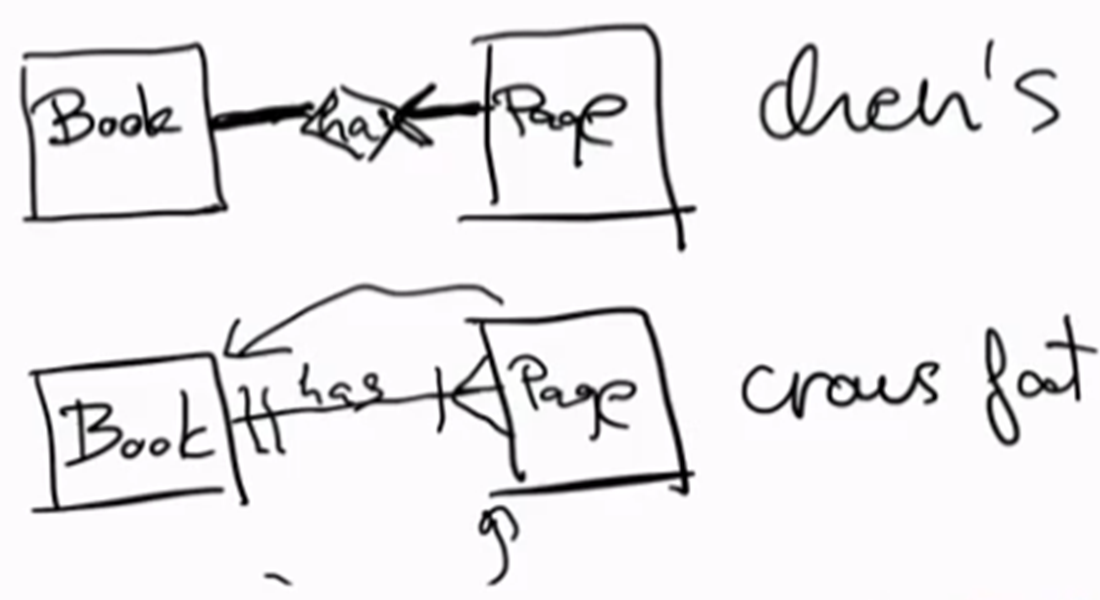 Book has Page chen's
Book has Page crows foot